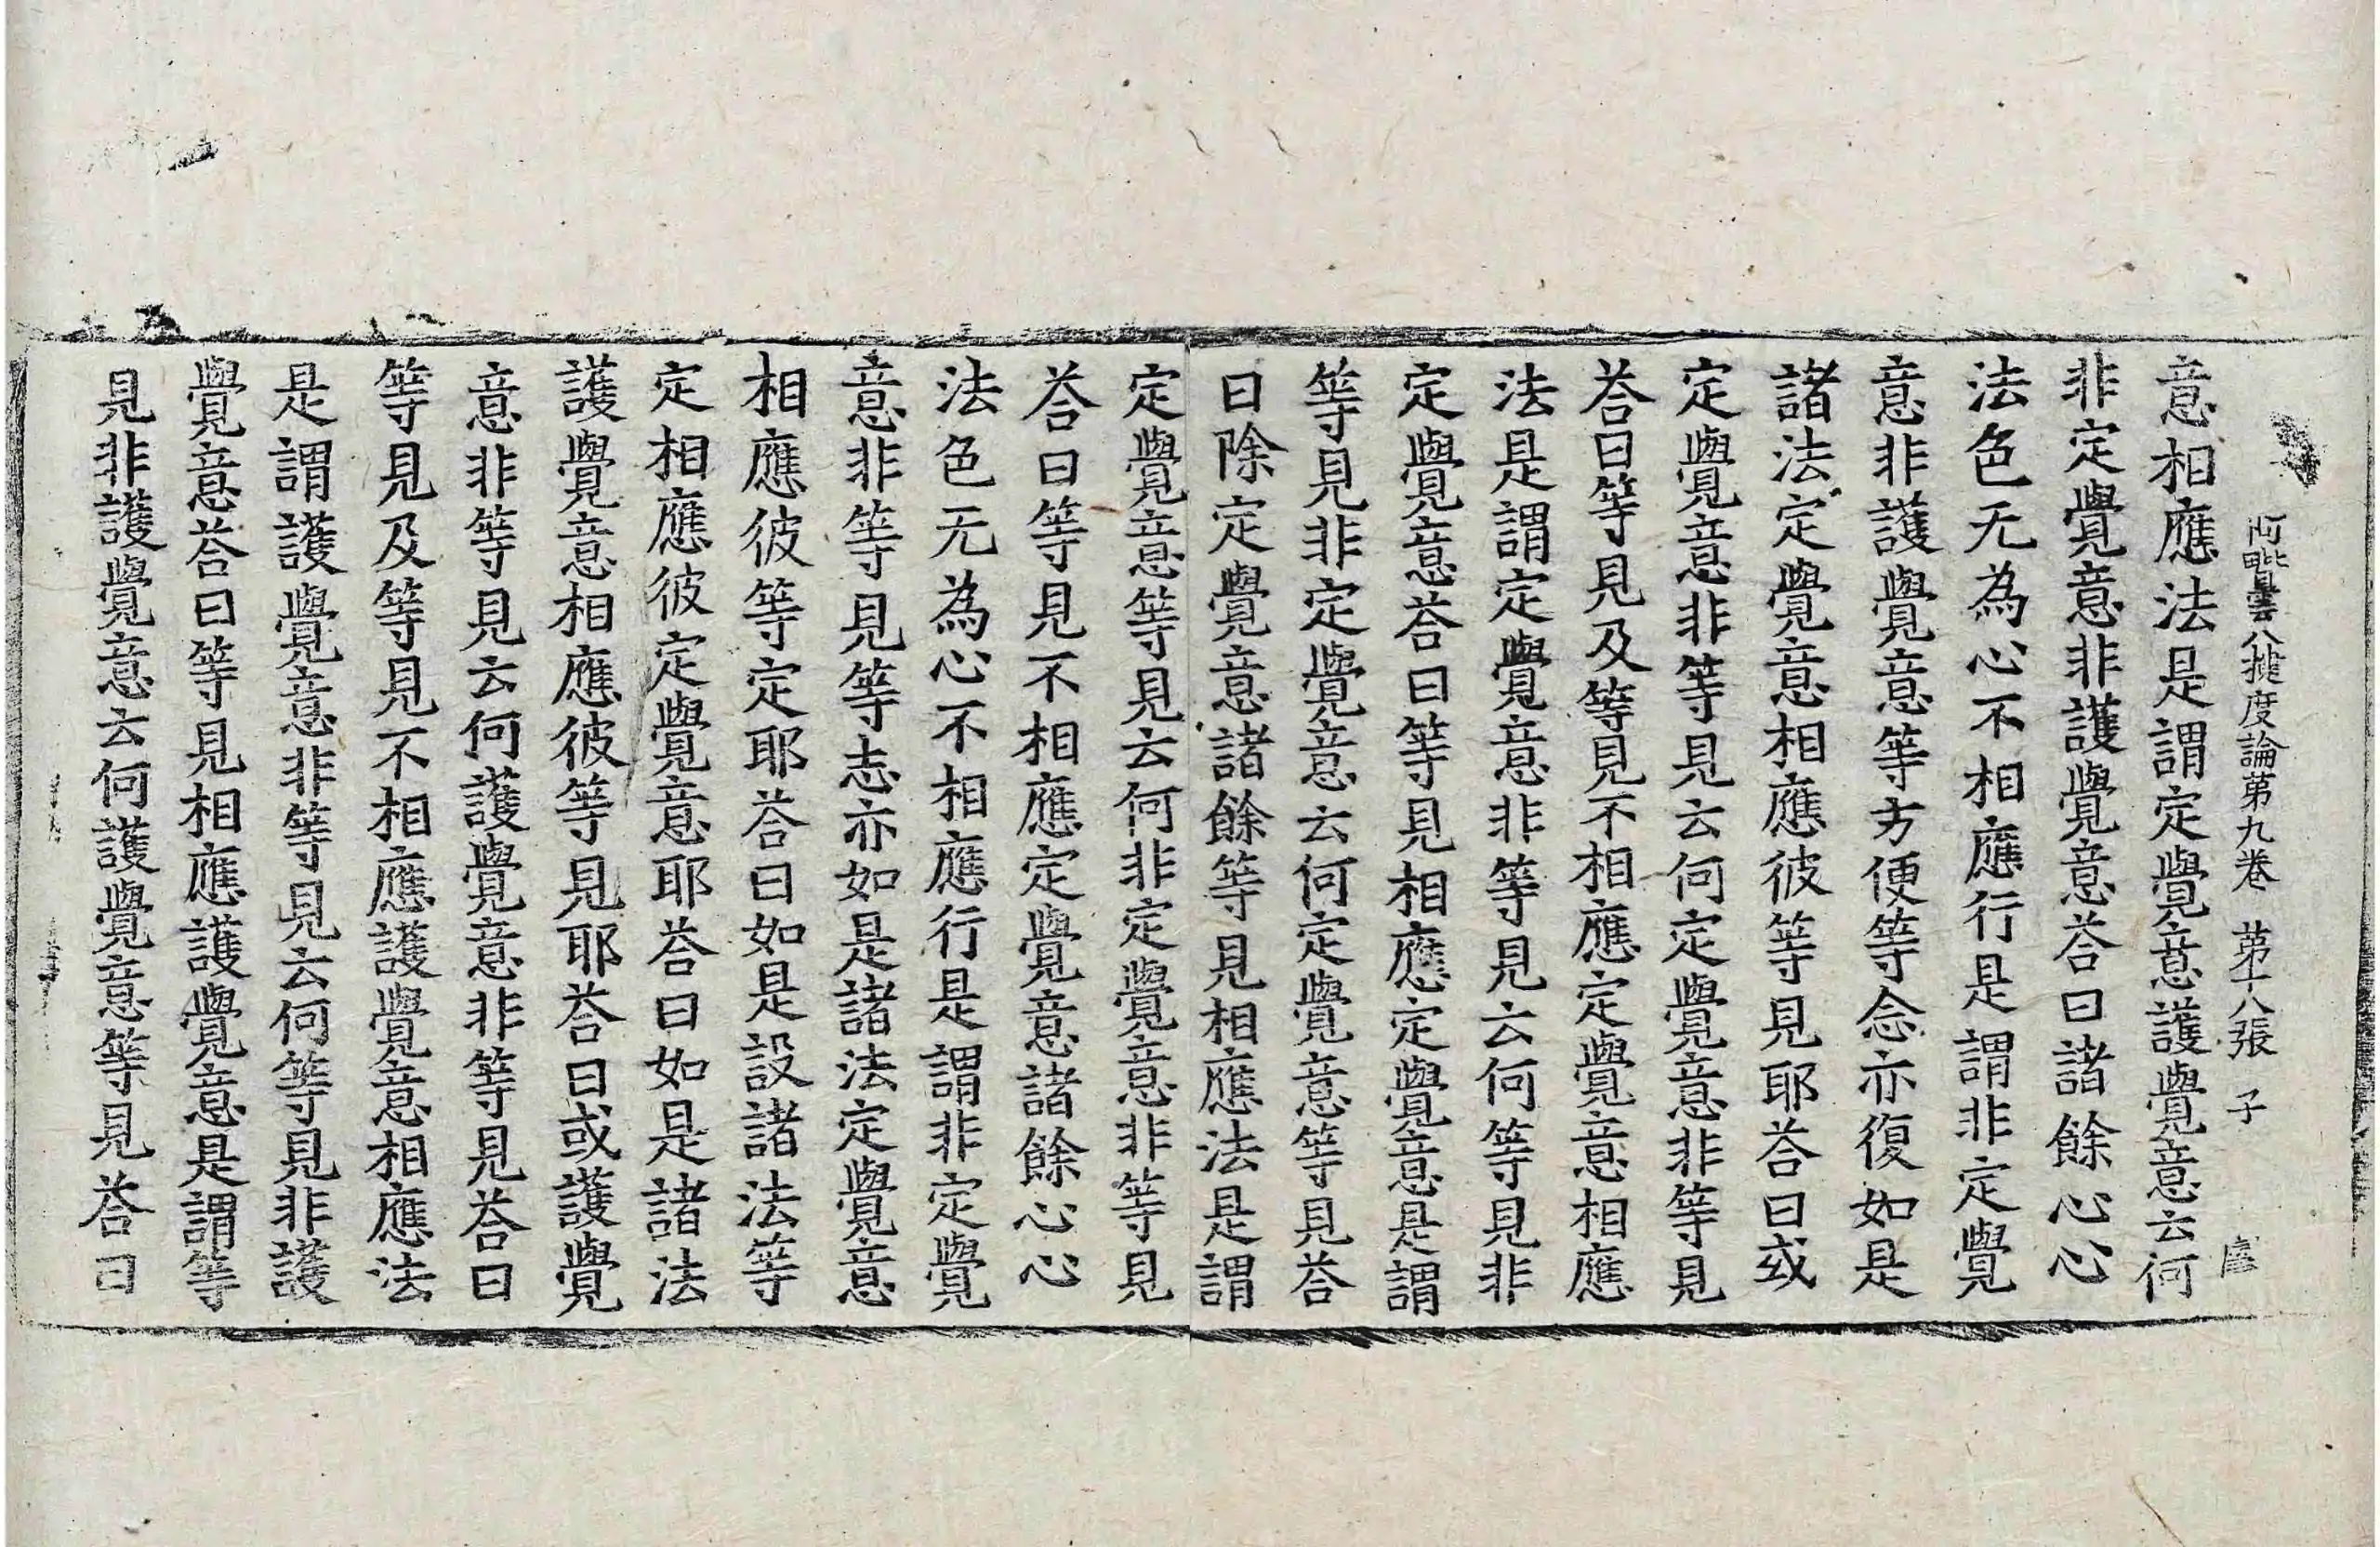 阿毗曇八揵度論第九卷 第十八張 子
意相應法是謂定覺意護覺意云何
非定覺意非護覺意荅曰諸餘心心
法色无為心不相應行是謂非定覺
意非護覺意等方便等念亦復如是
諸法定覺意相應彼等見耶荅曰或
定覺意非等見云何定覺意非等見
荅曰等見及等見不相應定覺意相應
法是謂定覺意非等見云何等見非
定覺意荅曰等見相應定覺意是謂
等見非定覺意云何定覺意等見荅
曰除定覺意諸餘等見相應法是謂
定覺意等見云何非定覺意非等見
荅曰等見不相應定覺意諸餘心心
法色无為心不相應行是謂非定覺
意非等見等志亦如是諸法定覺意
相應彼等定耶荅曰如是設諸法等
定相應彼定覺意耶荅曰如是諸法
護覺意相應彼等見耶荅曰或護覺
意非等見云何護覺意非等見荅曰
等見及等見不相應護覺意相應法
是謂護覺意非等見云何等見非護
覺意荅曰等見相應護覺意是謂等
見非護覺意云何護覺意等見荅曰